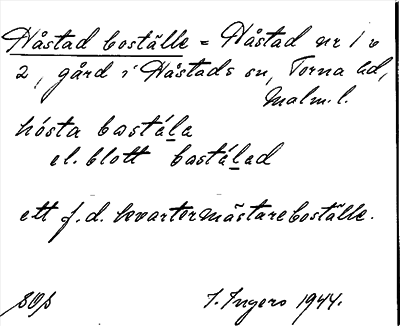 Håstad boställe = Håstad nr 1 o
2, gård i Håstads sn, Torna hd,
Malm. l.
hósta bastála
el. blott bastálad
ett f.d. kvartermästareboställe.
I. Ingers 1944.